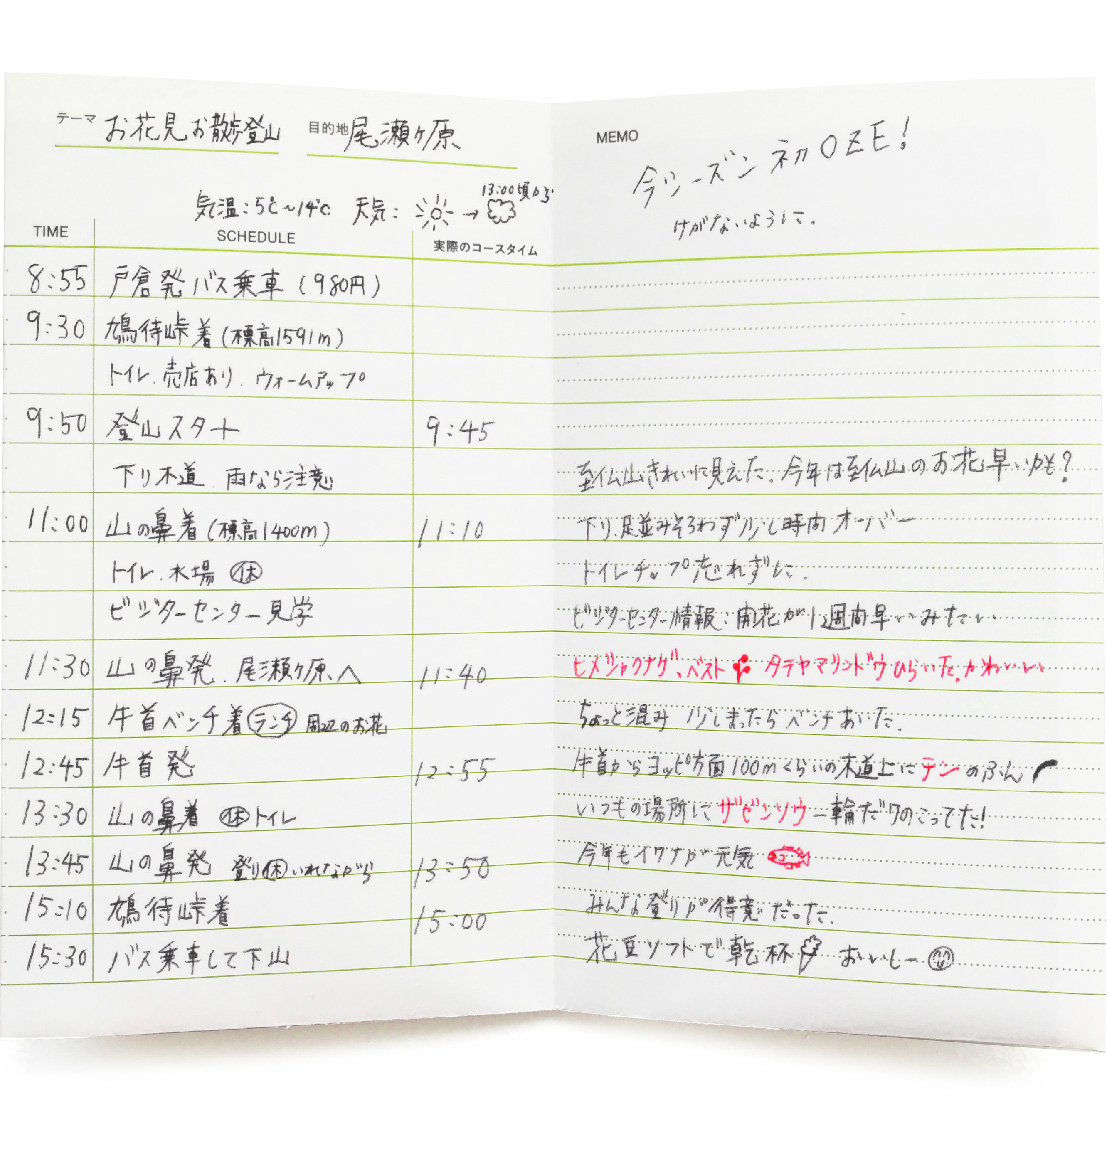 テーマ お花見お散歩登山 目的地 尾瀬ヶ原
気温:5℃〜14℃ 天気: → 13:00頃から
TIME SCHEDULE 実際のコースタイム
8:55 戸倉発バス乗車(980円)
9:30 鳩待峠着(標高1591m)
トイレ、売店あり、ウォームアップ
9:50 登山スタート 9:45
下り木道、雨なら注意
11:00 山の鼻着(標高1400m) 11:10
トイレ、水場 休
ビジターセンター見学
11:30 山の鼻発、尾瀬ヶ原へ 11:40
12:15 牛首ベンチ着 ランチ 周辺のお花
12:45 牛首発 12:55
13:30 山の鼻着 休 トイレ
13:45 山の鼻発 登り休いれながら 13:50
15:10 鳩待峠着 15:00
15:30 バス乗車して下山
MEMO
今シーズン初OZE!
けがないように.
至仏山きれいに見えた。今年は至仏山のお花早いかも?
下り、足並みそろわず少し時間オーバー
トイレチップ忘れずに.
ビジターセンター情報:開花が1週間早いみたい
ヒメシャクナゲ、ベスト タテヤマリンドウひらいた。かわいい
ちょっと混み 少しまったらベンチあいた.
牛首からヨッピ方面100mくらいの木道上にテンのふん
いつもの場所にザゼンソウ一輪だけのこってた!
今年もイワナが元気
みんな登りが得意だった.
花豆ソフトで乾杯 おいしー